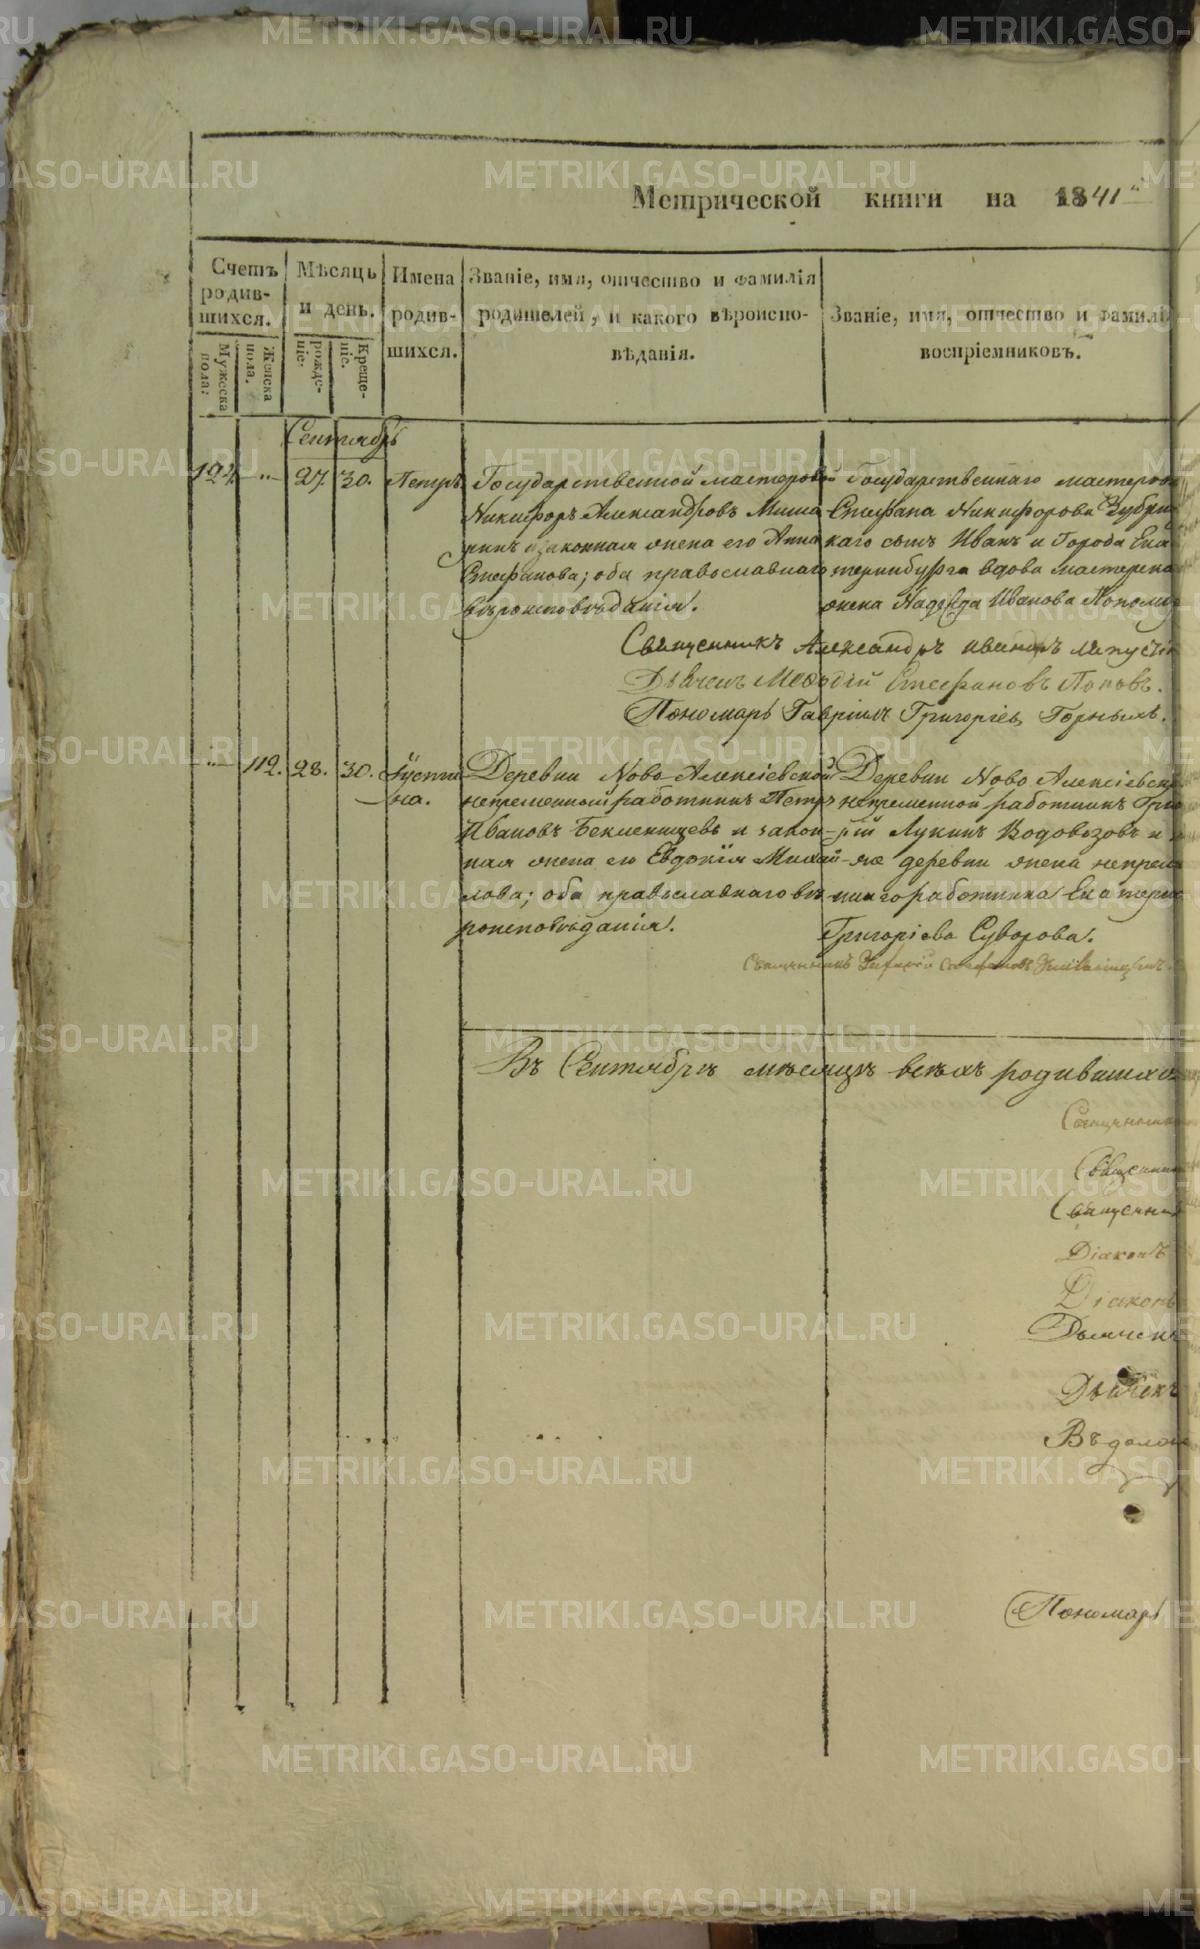 Метрической книги на 1841
Счетъ родив-шихся.
Мѣсяцъ и день.
Имена родив-шихся.
Званіе, имя, отчество и фамилія
родителей, и какого вѣроиспо-
вѣданія.
Званіе, имя, отчество и фамилі
воспріемниковъ.
Мужеска пола.
Женска пола.
рожде-ніе.
Креще-ніе.
Сентябрь
27. 30. Петръ
Государственной мастеровой
Никифоръ Александровъ
законная жена его Анна
Стефанова; оба православнаго
вѣроисповѣданія.
Государственнаго мастеров
Стефана Никифорова
сынъ Иванъ и Города Ека
теринбурга вдова мастерска
жена Надежда Иванова
Священникъ Александръ Ивановъ
Дьячекъ Меѳодій Стефановъ Поповъ.
Пономарь Гавріилъ Григорьевъ Горныхъ.
112. 28. 30. Іустина.
Деревни Ново Алексіевской
непременной работникъ Петръ
Ивановъ Бекленищевъ и закон-
ная жена его Евдокія Михай-
лова; оба православнаго вѣ-
роисповѣданія.
Деревни Ново Алексіевск
непременной работникъ Григо
рій Лукинъ Водовозовъ и
же деревни жена непрем
работника Екатерин
Григоріева Суворова.
Священникъ
Въ Сентябрѣ мѣсяцѣ всѣхъ родившихс
Священник
Священник
Священник
Діаконъ
Діаконъ
Дьячекъ
Дьячекъ
Пономарь
METRIKI.GASO-URAL.RU